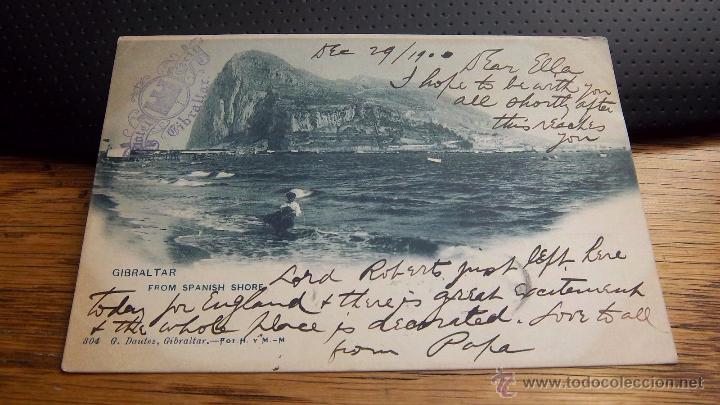 Dec 29/1900
Dear Ella
I hope to be with you
all shortly after
this reaches
you
Gibraltar
GIBRALTAR
FROM SPANISH SHORE
Lord Roberts just left here
today for England & there is great excitement
& the whole place is decorated. Love to all
from Papa
304 G. Dautez, Gibraltar.—Fot H. Y M.-M
www.todocoleccion.net